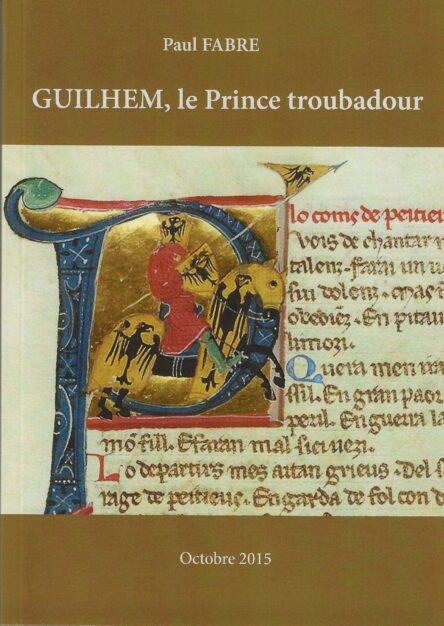 Paul FABRE
GUILHEM, le Prince troubadour
lo coms de peitieu
vois de chantar
talenz. farai un u
sui dolenz.
obediēz. En pitau
limozi.
Quera men ira
ssil. En gran paor
peril. En guerra la
mō fill. E faran mal siei vezi.
Lo departirs mes aitan grieus. Del s
rage de peitieus. En garda de fol con d
Octobre 2015